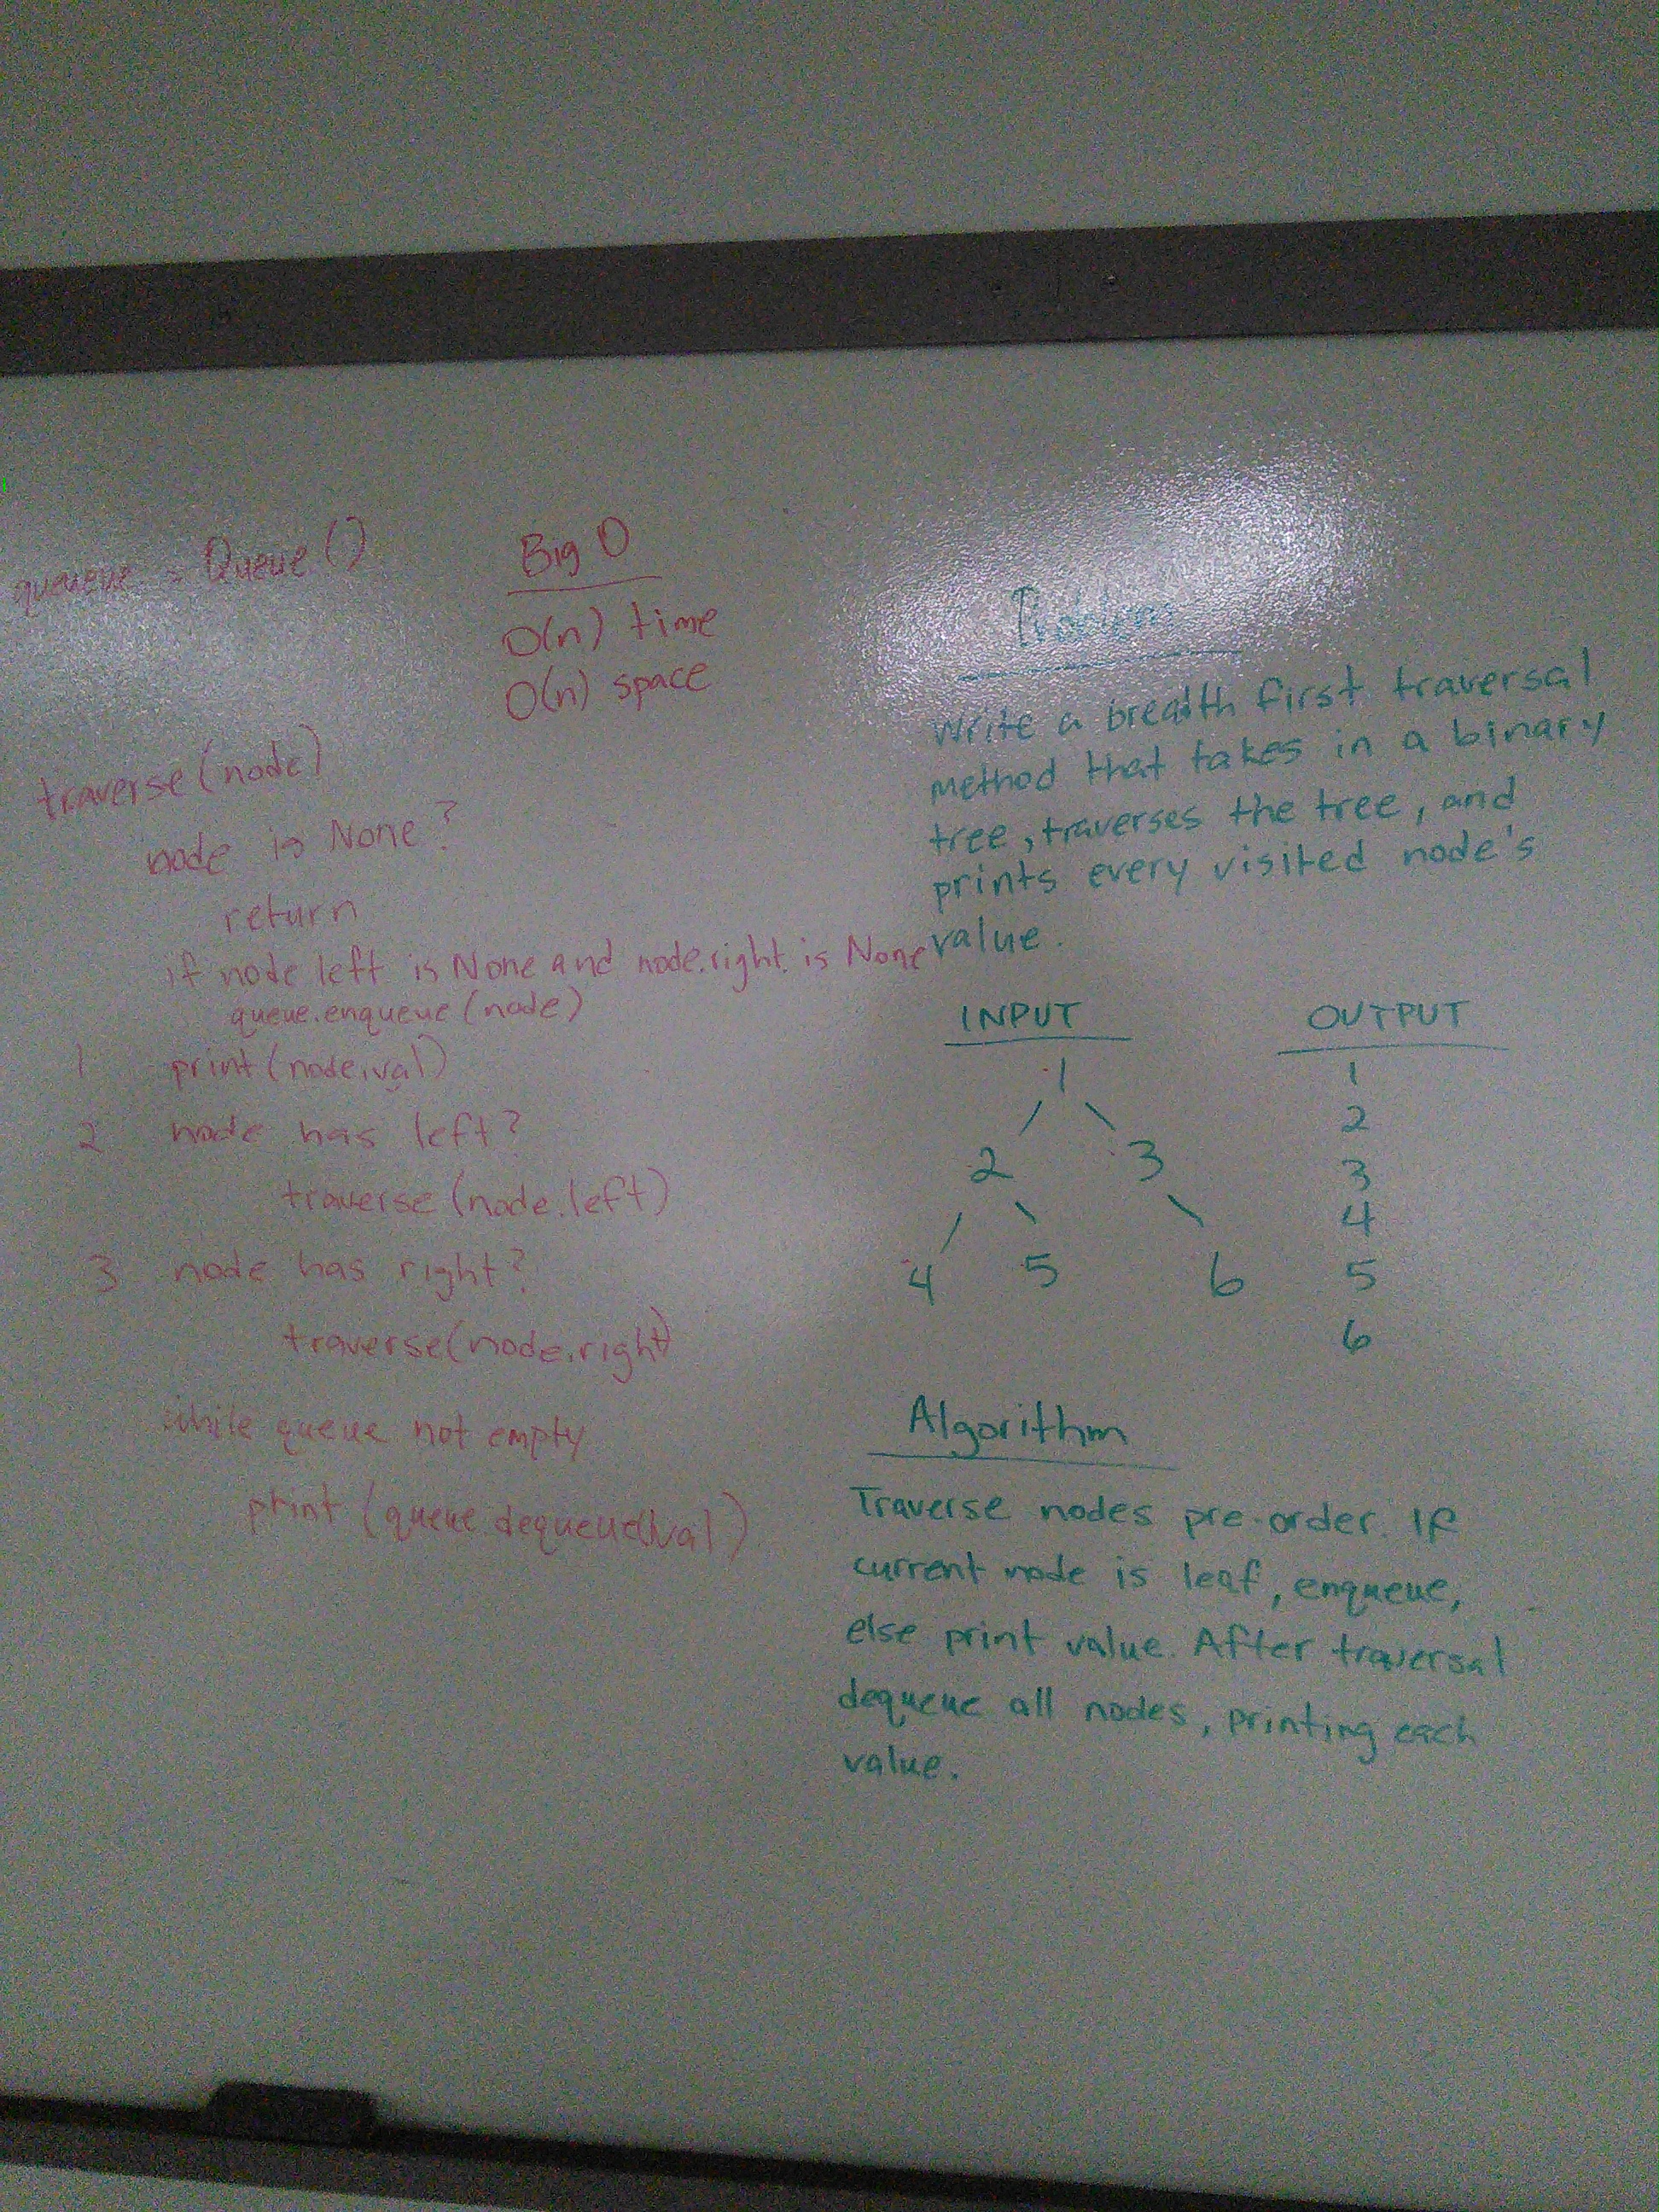 queueue = Queue()
traverse(node)
node is None?
return
if node left is None and node.right. is None
queue.enqueue(node)
1 print(node.val)
2 node has left?
traverse(node.left)
3 node has right?
traverse(node.right)
while queue not empty
print(queue.dequeue().val)
Big O
O(n) time
O(n) space
Problem
Write a breadth first traversal
method that takes in a binary
tree, traverses the tree, and
prints every visited node's
value.
INPUT
1
/ \
2 3
/ \ \
4 5 6
OUTPUT
1
2
3
4
5
6
Algorithm
Traverse nodes pre-order. If
current node is leaf, enqueue,
else print value. After traversal
dequeue all nodes, printing each
value.